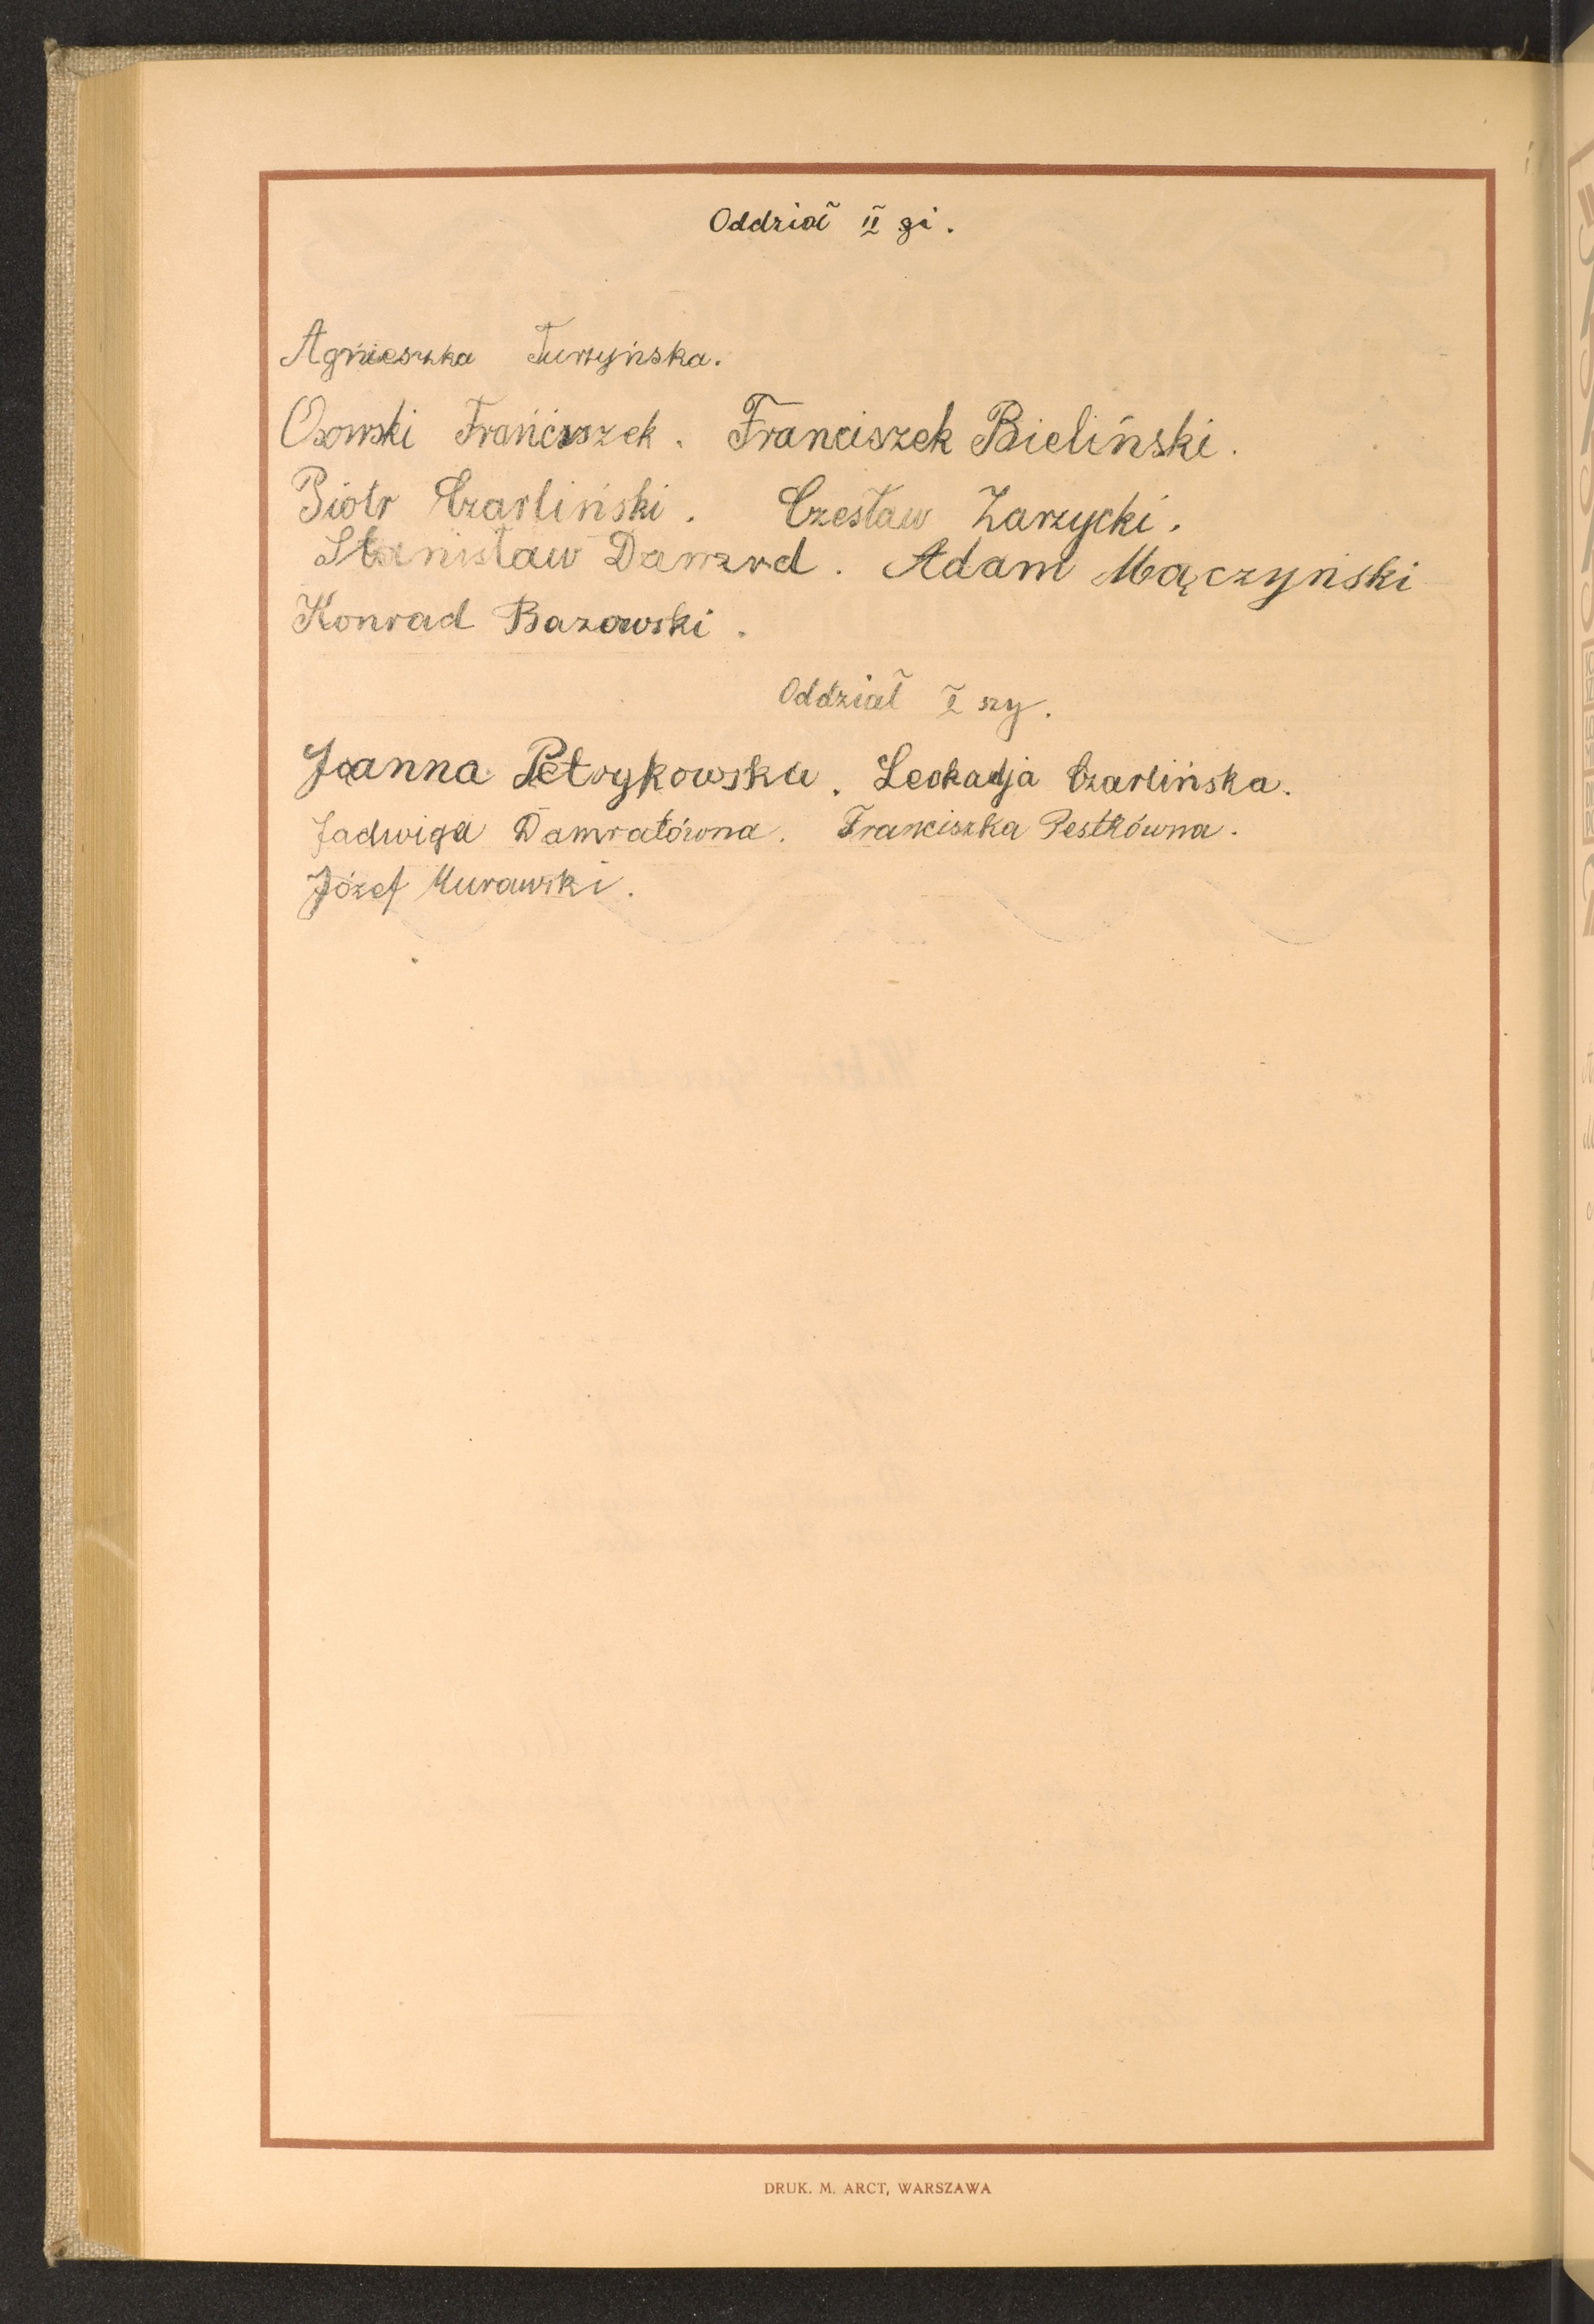 Oddział II gi.
Agnieszka Turzyńska.
Osowski Franciszek. Franciszek Bieliński.
Piotr Czarliński. Czesław Zarzycki.
Stanisław Damrod. Adam Mączyński
Konrad Bazowski.
Oddział I szy.
Joanna Petrykowska. Leokadja Czarlińska.
Jadwiga Damratówna. Franciszka Pestkówna.
Józef Murawski.
DRUK. M. ARCT, WARSZAWA